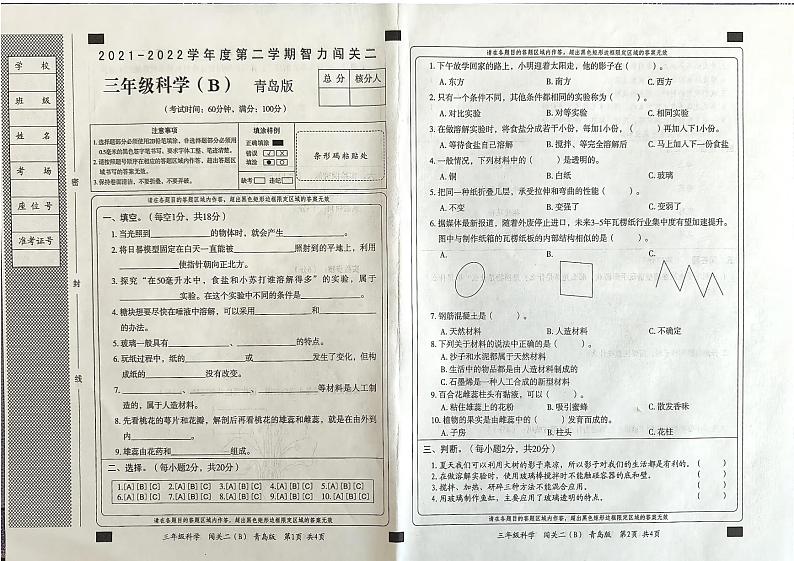 学 校
班 级
姓 名
考 场
座 位 号
准考证号
密
封
线
2021-2022学年度第二学期智力闯关二
三年级科学（B） 青岛版
总 分 核分人
（考试时间：60分钟，满分：100分）
注意事项
1.选择题部分必须使用2B铅笔填涂，非选择题部分必须用
0.5毫米的黑色签字笔书写，要求字体工整，笔迹清楚。
2.请按照题号顺序在相应的答题区域内作答，超出答题区
域书写的答案无效。
3.保持卷面清洁，不要折叠，不要弄破。
填涂样例
正确填涂
错误
填涂
缺考 违纪
条形码粘贴处
请在各题目的答题区域内作答，超出黑色矩形边框限定区域的答案无效
一、填空。（每空1分，共18分）
1. 当光照到________的物体时，就会产生________。
2. 将日晷模型固定在白天一直能被________照射到的平地上，利用
________使指针朝向正北方。
3. 探究“在50毫升水中，食盐和小苏打谁溶解得多”的实验，属于
________实验。在这个实验中不同的条件是________。
4. 糖块想要尽快在唾液中溶解，可以采用________和________
的办法。
5. 玻璃一般具有________、________的特点。
6. 玩纸过程中，纸的________或________发生了变化，但构
成纸的________没有改变。
7. ________、________、________等材料是人工制
造的，属于人造材料。
8. 先看桃花的萼片和花瓣，解剖后再看桃花的雄蕊和雌蕊，就是在由外到
内________。
9. 雄蕊由花药和________组成。
二、选择。（每小题2分，共20分）
1. [A] [B] [C] 2. [A] [B] [C] 3. [A] [B] [C] 4. [A] [B] [C] 5. [A] [B] [C]
6. [A] [B] [C] 7. [A] [B] [C] 8. [A] [B] [C] 9. [A] [B] [C] 10. [A] [B] [C]
请在各题目的答题区域内作答，超出黑色矩形边框限定区域的答案无效
三年级科学 闯关二（B） 青岛版 第1页 共4页
请在各题目的答题区域内作答，超出黑色矩形边框限定区域的答案无效
1. 下午放学回家的路上，小明迎着太阳走，他的影子在（ ）。
A. 东方 B. 南方 C. 西方
2. 只有一个条件不同，其他条件都相同的实验称为（ ）。
A. 对比实验 B. 对等实验 C. 相同实验
3. 在做溶解实验时，将食盐分成若干小份，每加1小份，（ ）再加入下1小份。
A. 等待食盐自己溶解 B. 搅拌、等完全溶解后 C. 马上加入下一份食盐
4. 一般情况，下列材料中的（ ）是透明的。
A. 铜 B. 白纸 C. 玻璃
5. 把同一种纸折叠几层，承受拉伸和弯曲的性能（ ）。
A. 不变 B. 变强了 C. 变弱了
6. 据媒体最新报道，随着外废停止进口，未来3-5年瓦楞纸行业集中度有望加速提升。
图中与制作纸箱的瓦楞纸板的内部结构相似的是（ ）。
A. B. C.
7. 钢筋混凝土是（ ）。
A. 天然材料 B. 人造材料 C. 不确定
8. 下列关于材料的说法中正确的是（ ）。
A. 沙子和水泥都属于天然材料
B. 生活中的物品都是由人造材料制成的
C. 石墨烯是一种人工合成的新型材料
9. 百合花雌蕊柱头有黏液，可以（ ）。
A. 粘住雄蕊上的花粉 B. 吸引蜜蜂 C. 散发香味
10. 植物的果实是由雌蕊中的（ ）发育而成的。
A. 子房 B. 柱头 C. 花柱
三、判断。（每小题2分，共20分）
1. 夏天我们可以利用大树的影子乘凉，所以影子对我们的生活都是有利的。（ ）
2. 在做溶解实验时，使用玻璃棒搅拌时不能触碰容器的底和壁。（ ）
3. 搅拌、加热、研碎三种方法不能混合应用。（ ）
4. 用玻璃制作鱼缸，主要应用了玻璃透明的特点。（ ）
请在各题目的答题区域内作答，超出黑色矩形边框限定区域的答案无效
三年级科学 闯关二（B） 青岛版 第2页 共4页